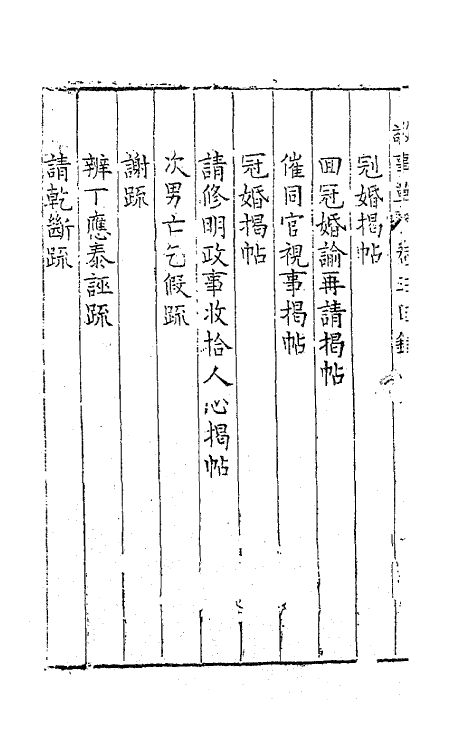 冠婚揭帖
回冠婚諭再請揭帖
催同官視事揭帖
冠婚揭帖
請修明政事收拾人心揭帖
次男亡乞假疏
謝疏
辨丁應泰誣疏
請乾斷疏